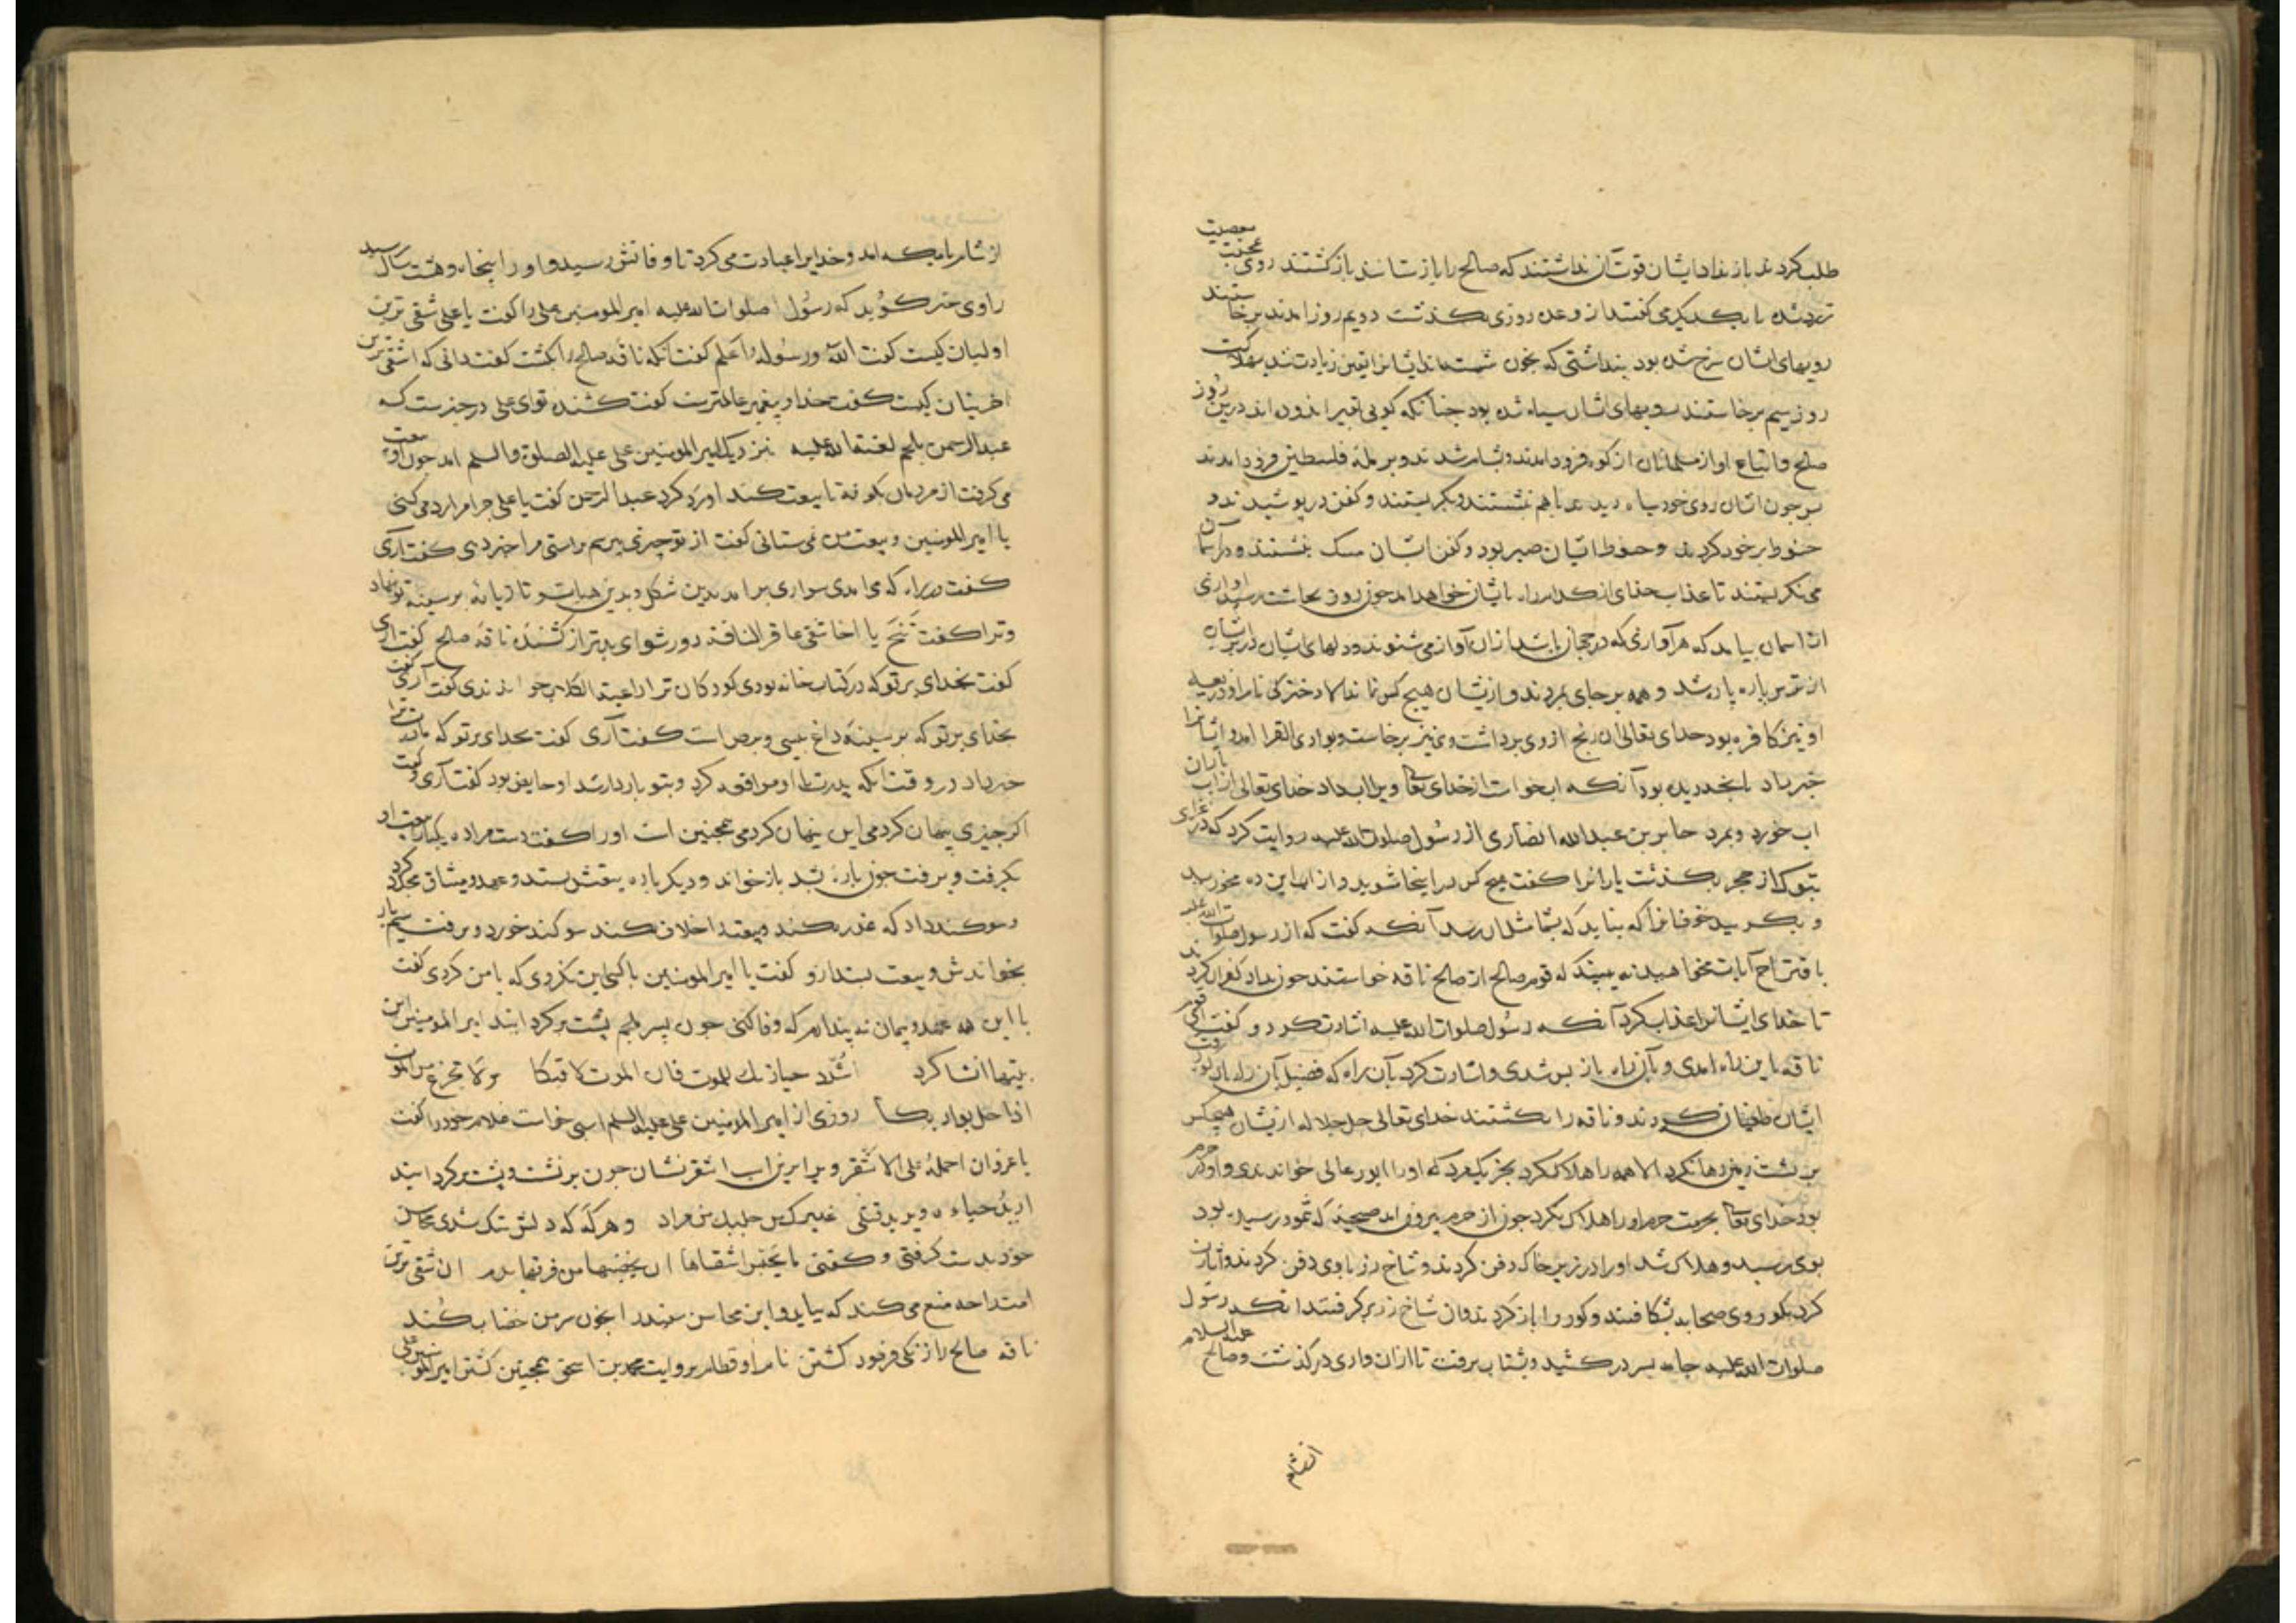 طلب کردند باز نداد ایشان قوت آن نداشتند که صالح را باز ستانند باز گشتند روی
زرد شده با یکدیگر می گفتند از وعده روزی بگذشت دویم روز امدند برخاستند
رویهای ایشان سرخ شده بود پنداشتی که بخون شسته اند ایشانرا یقین زیادت شد بهلاکت
روز سیم برخاستند رویهای ایشان سیاه شده بود چنانکه گویی بقیر اندوده اند درین روز
صالح و اتباع او از مسلمانان از کوه فرود امدند و بشام شدند و برمله فلسطین فرود امدند
چون ایشان روی خود سیاه دیدند با هم نشستند و بگریستند و کفن در پوشیدند و
حنوط بر خود کردند و حنوط ایشان صبر بود و کفن ایشان مسک بنشستند و در آسمان
می نگریستند تا عذاب خدای از کدام راه بایشان خواهد امد چون روز بچاشت رسید اوازی
از اسمان بیامد که هر آوازی که در جهان باشد ازان آواز می شنوند و دلهای ایشان در بر ایشان
از ترس پاره پاره شد و همه بر جای بمردند و ازیشان هیچ کس نماند الا دخترکی نام او ذریعه
او نیز کافره بود خدای تعالی ان رنج از وی برداشت وی نیز برخاست و بوادی القرا امد و ایشانرا
خبر داد بانچه دیده بود آنکه اب خواست از خدای تعا ویرا اب داد خدای تعالی از اب
اب خورد و بمرد جابر بن عبدالله انصاری از رسول صلوات الله علیه روایت کرد که در غزای
تبوک از حجر بگذشت یارانرا گفت هیچ کس در اینجا مشوید و از اب این ده مخورید
و بگریید خوفا نرا که نباید که بشما مثل ان رسد آنکه گفت که از رسول صلوات الله علیه
باقتراح آیات مخواهید نه بینید که قوم صالح از صالح ناقه خواستند چون بداد کفران کردند
تا خدای ایشانرا عذاب کرد آنکه رسول صلوات الله علیه اشارت کرد و گفت ای قوم
ناقه باین راه امدی و بآن راه باز پس شدی و اشارت کرد بآن راه که فصیل آن راه
ایشان طغیان کردند و ناقه را بکشتند خدای تعالی جل جلاله ازیشان هیچکس
بر پشت زمین رها نکرد الا همه را هلاک کرد بجز یک مرد که اورا ابورغالی خواندندی و او در حرم
بود خدای تعا بحرمت حرم اورا هلاک نکرد چون از حرم بیرون امد صیحه که ثمود رسیده بود
بوی رسید و هلاک شد اورا در زیر خاک دفن کردند و شاخ زر باوی دفن کردند و اشارت
کرد بگور وی صحابه بشکافتند و گور را باز کردند وان شاخ زر برگرفتند انکه رسول
صلوات الله علیه جامه بسر درکشید و بشتاب برفت تا ازان وادی درگذشت و صالح علیه السلام
از شام
از شام بامکه امد و خدایرا عبادت می کرد تا وفاتش رسید و اورا پنجاه و هشت سال رسید
راوی خبر گوید که رسول صلوات الله علیه امیر المومنین علی را گفت یا علی شقی ترین
اولیان کیست گفت الله و رسوله اعلم گفت انکه ناقه صالح را بکشت گفت دانی که اشقی ترین
اخریان کیست گفت خدا و پیغمبر عالمترست گفت کشنده تو ای علی در خبرست که
عبدالرحمن بلجم لعنه الله علیه نزدیک امیر المومنین علی علیه الصلوة والسلم امد چون او بیعت
می گرفت از مردمان بکوفه تا بیعت کند اورد کرد عبدالرحمن گفت یا علی چرا مرا رد می کنی
یا امیر المومنین و بیعت من نمی ستانی گفت از تو چیزی بپرسم براستی مرا خبر دهی گفت آری
گفت در راه که می امدی سواری برامد بدین شکل و بدین هیات و تازیانه بر سینه تو نهاد
و ترا گفت تنح یا اخا شقی عاقر الناقه دور شو ای بدتر از کشنده ناقه صالح گفت اری
گفت بخدای بر تو که در کتاب خانه بودی کودکان ترا راعیة الکلاب خواندندی گفت آری گفت
بخدای بر تو که بر سینه داغ پیسی و برص است گفت آری گفت بخدای بر تو که مادرت ترا
خبر داد در وقت انکه پدرت با او موافقه کرد و بتو باردار شد او حایض بود گفت آری و گفت
اگر چیزی پنهان کردمی این پنهان کردمی همچنین است اورا گفت دست مرا ده یکبار بیعت او
بگرفت و برفت چون پاره شد باز خواند و دیگر باره بیعتش بستد و عهد و میثاق مجدد کرد
و سوگند داد که غدر نکند و بیعت را خلاف نکند سوگند خورد و برفت سیم بار
بخواندش و بیعت بستد ازو گفت یا امیر المومنین با کسی این نکردی که با من کردی گفت
با این همه عهد و پیمان نه پندارم که وفا کنی چون پسر ملجم پشت برکرد ابتدا امیر المومنین این
بیتها انشا کرد اشدد حیازیمک للموت فان الموت لاقیکا ولا تجزع من الموت
اذا حل بوادیکا روزی از امیر المومنین علی علیه السلم اسبی خواست غلام خود را گفت
یا غزوان احمله علی الاشقر ویرا برین اسب اشقر نشان چون برنشست و پشت برکردانید
ارید حیاءه و یرید قتلی غدیرک من خلیلک من مراد و هر گه که دلش تنگ شدی محاسن
خود بدست گرفتی و گفتی ما یحبس اشقاها ان یخضبها من فوقها بدم ان شقی ترین
امت را چه منع می کند که بیاید و این محاسن سفید را بخون سر من خضاب کند
ناقه صالح را زنکی فرمود کشتن نام او قطام بروایت محمد بن اسحق همچنین کشتن امیر المومنین علی